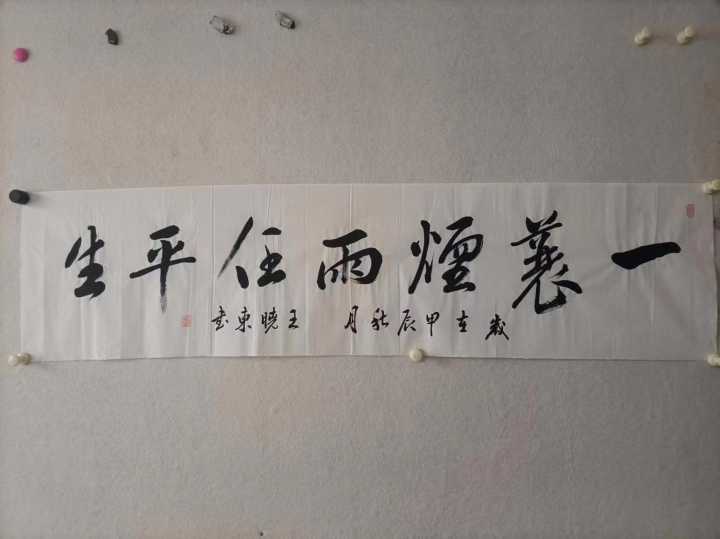 一蓑煙雨任平生
歲在甲辰秋月 王曉東書